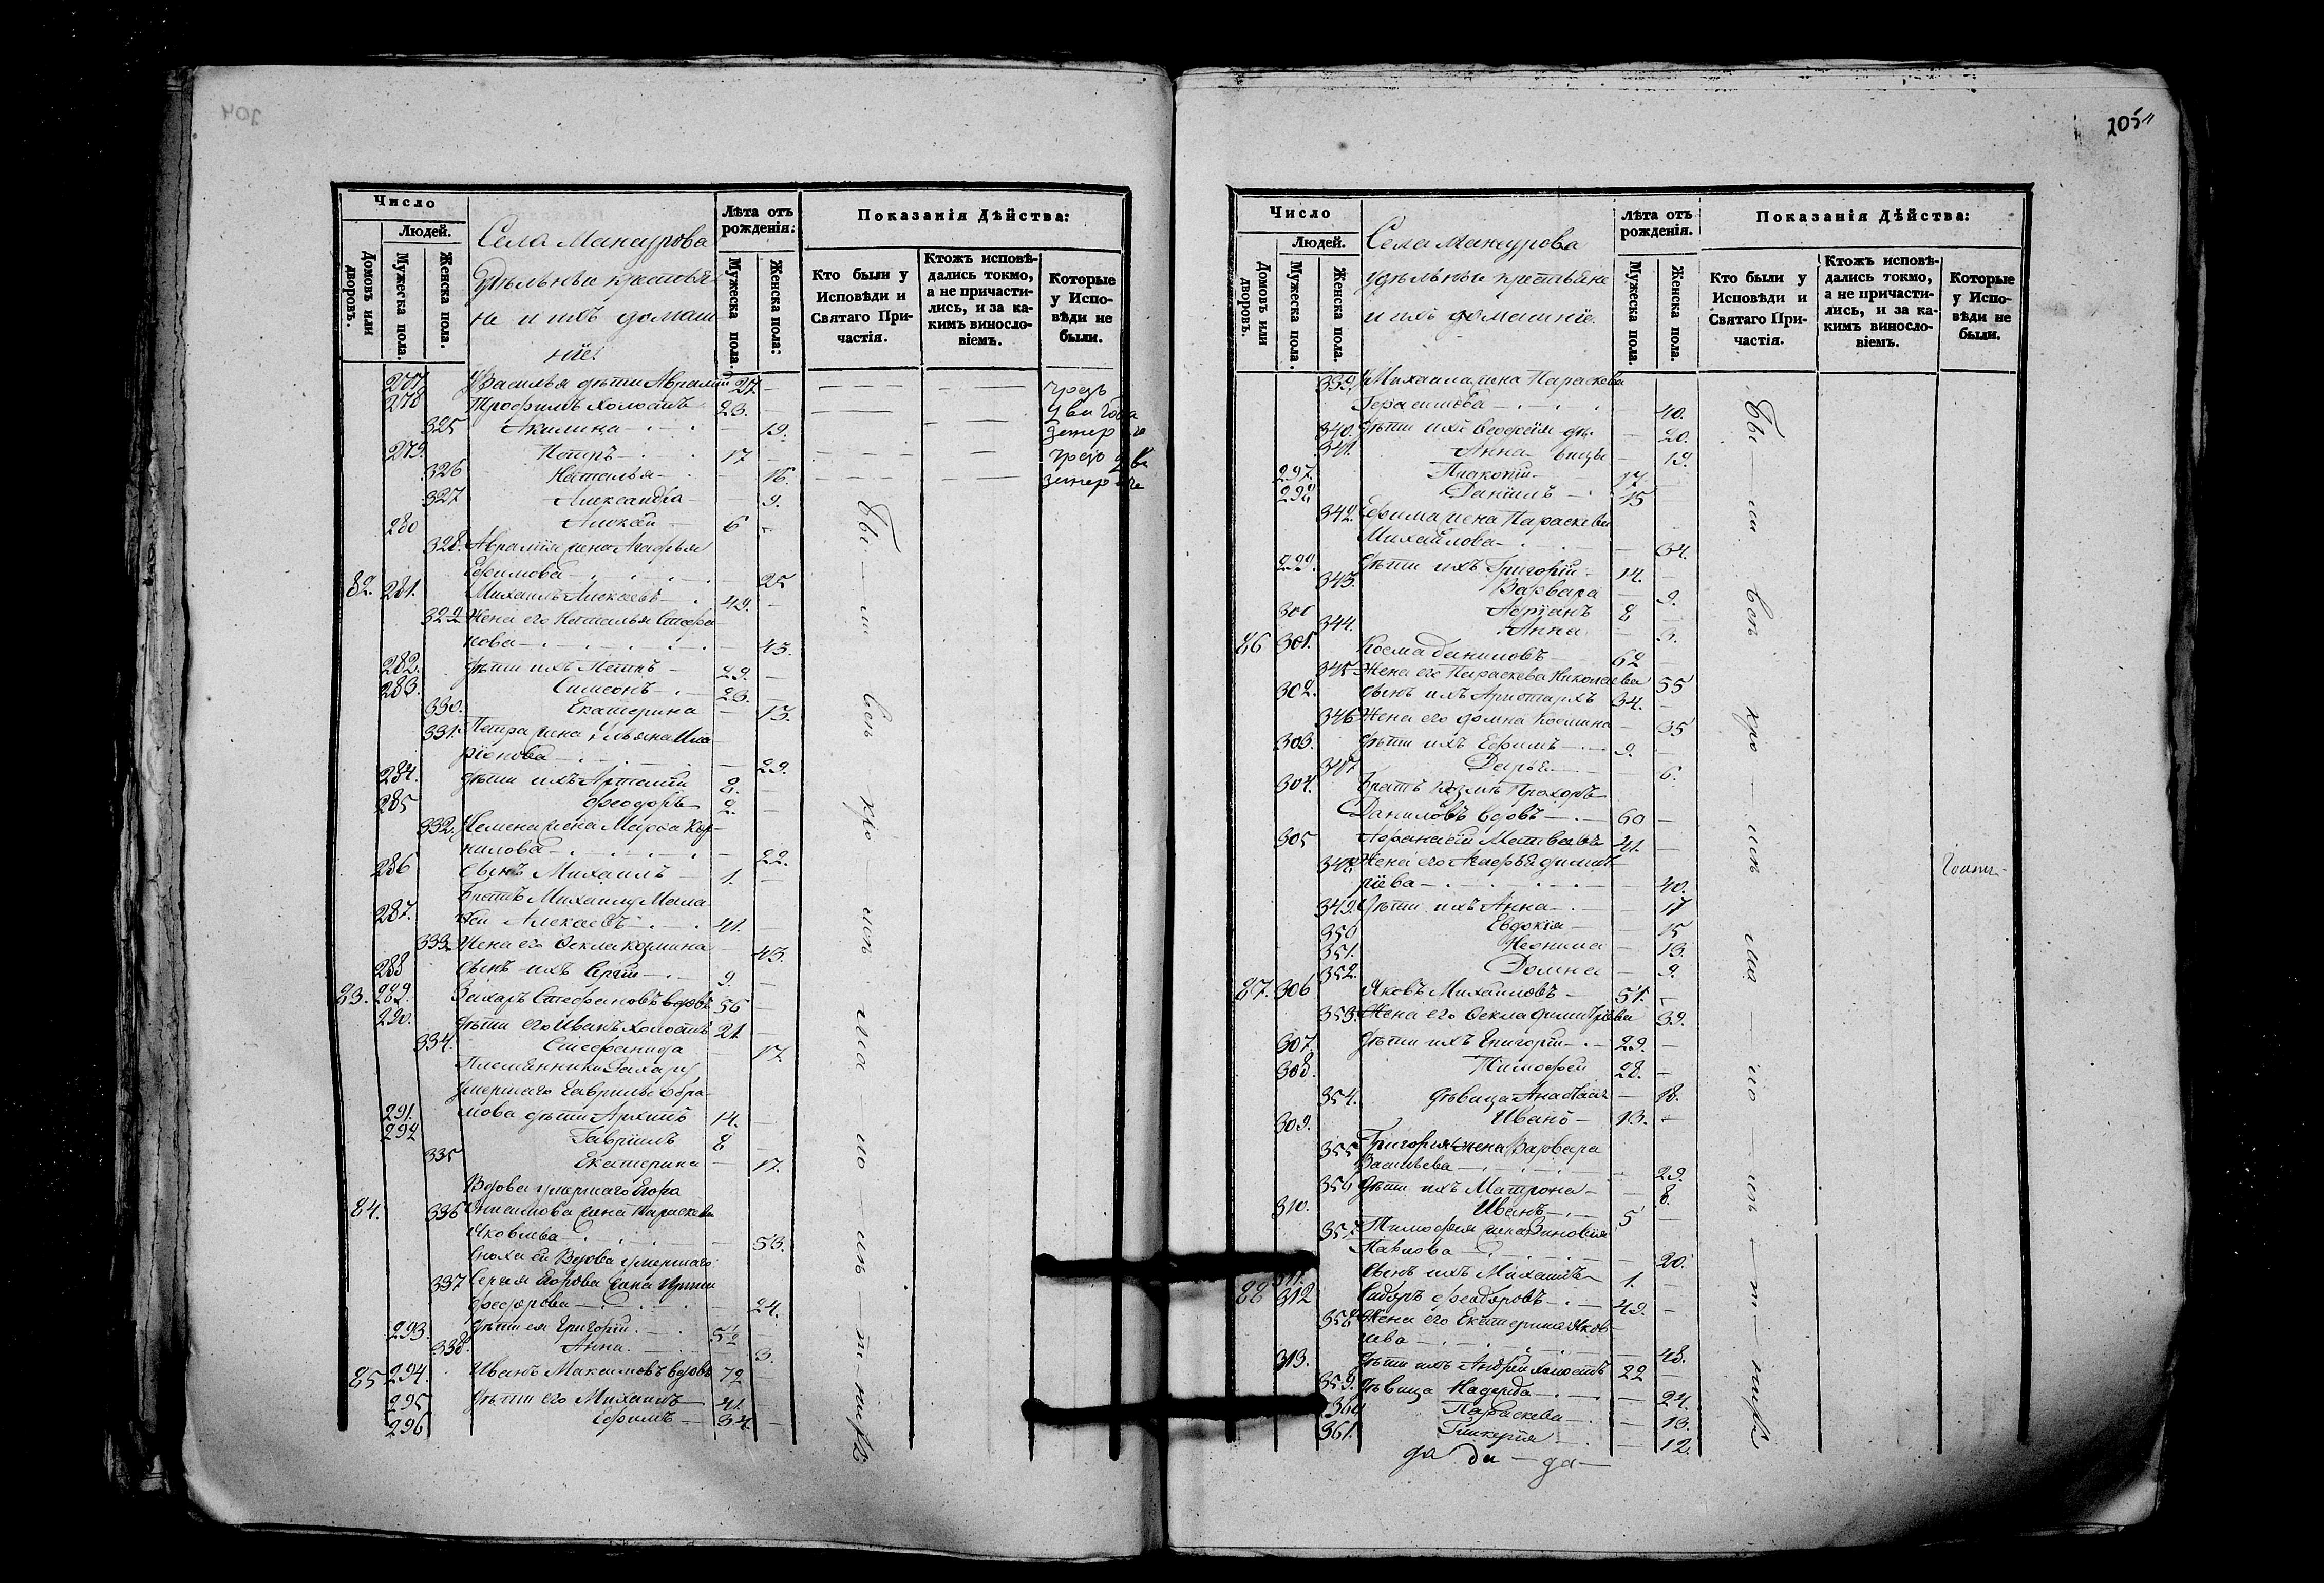 105
Число
Людей.
Домовъ или дворовъ.
Мужеска пола.
Женска пола.
Села Мансурова
Удѣльные крестья
не и ихъ домаш
нїе:
Лѣта отъ рожденія:
Мужеска пола.
Женска пола:
Показанія Дѣйства:
Кто были у Исповѣди и Святаго Причастія.
Ктожъ исповѣдались токмо, а не причастились, и за какимъ винословіемъ.
Которые у Исповѣди не были.
277 Василья дѣти Аврамий 27 —
278 Трофимъ холостъ 23. —
325 Акилина — 19.
279. Петръ 17 —
326 Наталья — 16.
327 Александра — 9.
280 Алексѣй 6 —
328. Аврамїя жена Агафья
Ефимова — 25
82. 281. Михаилъ Алексѣевъ 49. —
329 Жена его Наталья Стефа
нова — 45.
282. дѣти ихъ Петръ 29. —
283. Симеонъ 23. —
330. Екатерина — 13.
331. Петра жена Ульяна Ила
рїонова — 29.
284. дѣти ихъ Артемїй 8. —
285 Феодоръ 2. —
332. Семена жена Марфа Кор
нилова — 22.
286 сынъ Михаилъ 1. —
Братъ Михаилу
287. Алексѣевъ 41. —
333. Жена его Фекла Козмина — 43.
288 сынъ ихъ Сергїй 9. —
83. 289. Захаръ Стефановъ вдовъ 56 —
290. дѣти его Иванъ холостъ 21. —
334. Стефанида — 17.
Племянники Захару
умершаго Гаврилы Абра
291. мова дѣти Архипъ 14. —
292 Гаврїилъ 8 —
335 Екатерина — 17.
Вдова умершаго Егора
84. 336 жена Параскева
Яковлева — 53.
Сноха ей Вдова умершаго
337 Сергея Егорова жена
Феодорова — 24.
293. дѣти ея Григорїй 5½
338. Анна — 3.
85 294. Иванъ Максимовъ вдовъ 72 —
295 дѣти его Михаилъ 41. —
296 Ефимъ 34. —
Число
Людей.
Домовъ или дворовъ.
Мужеска пола
Женска пола.
Села Мансурова
удѣльные крестьяне
и ихъ домашнїе.
Лѣта отъ рожденія.
Мужеска пола.
Женска пола.
Показанія Дѣйства:
Кто были у Исповѣди и Святаго Причастія.
Ктожъ исповѣдались токмо, а не причастились, и за какимъ винословіемъ.
Которые у Исповѣди не были.
339. Михаила жена Параскева
Герасимова — 40.
340. дѣти ихъ дѣ — 20.
341. Анна вицы — 19.
297. Прокопїй 17. —
298 Данїилъ 15 —
342. Ефима жена Параскева
Михайлова — 34.
299. дѣти ихъ Григорїй 14. —
343. Варвара — 9.
300 8 —
344. Анна — 3.
86 301. Косма Даниловъ 62 —
345 Жена его Параскева Николаева 55
302. сынъ ихъ Аристархъ 34. —
346 Жена его Домна Космина — 35
303. дѣти ихъ Ефимъ 9. —
347 Дарья — 6.
304. Братъ Козмѣ Прохоръ
Даниловъ вдовъ 60 —
305 Афанасїй Матвѣевъ 41. —
348. Жена его Агафья Димит
рїева — 40.
349. дѣти ихъ Анна — 17
350 Евдокїя — 15
351. Неонила — 13.
352. Домна — 9.
87. 306 Яковъ Михайловъ 51. —
353. Жена его Фекла Димитрїева 39.
307. дѣти ихъ Григорїй 29. —
308. Тимофей 28. —
354. дѣвица Анастасїя — 18.
309. Иванъ 13. —
355 Григорья жена Варвара
Васильева — 29.
356 дѣти ихъ Матрона — 8.
310. Иванъ 5 —
357. Тимофея жена Зиновїя
Павлова — 20.
311. сынъ ихъ Михаилъ 1. —
88 312 Сидоръ Феодоровъ 49. —
358 Жена его Екатерина Яков
лева — 48.
313. дѣти ихъ Андрей холостъ 22 —
359. дѣвица Надежда — 24.
360 Параскева — 13.
361. Гликерїя — 12.